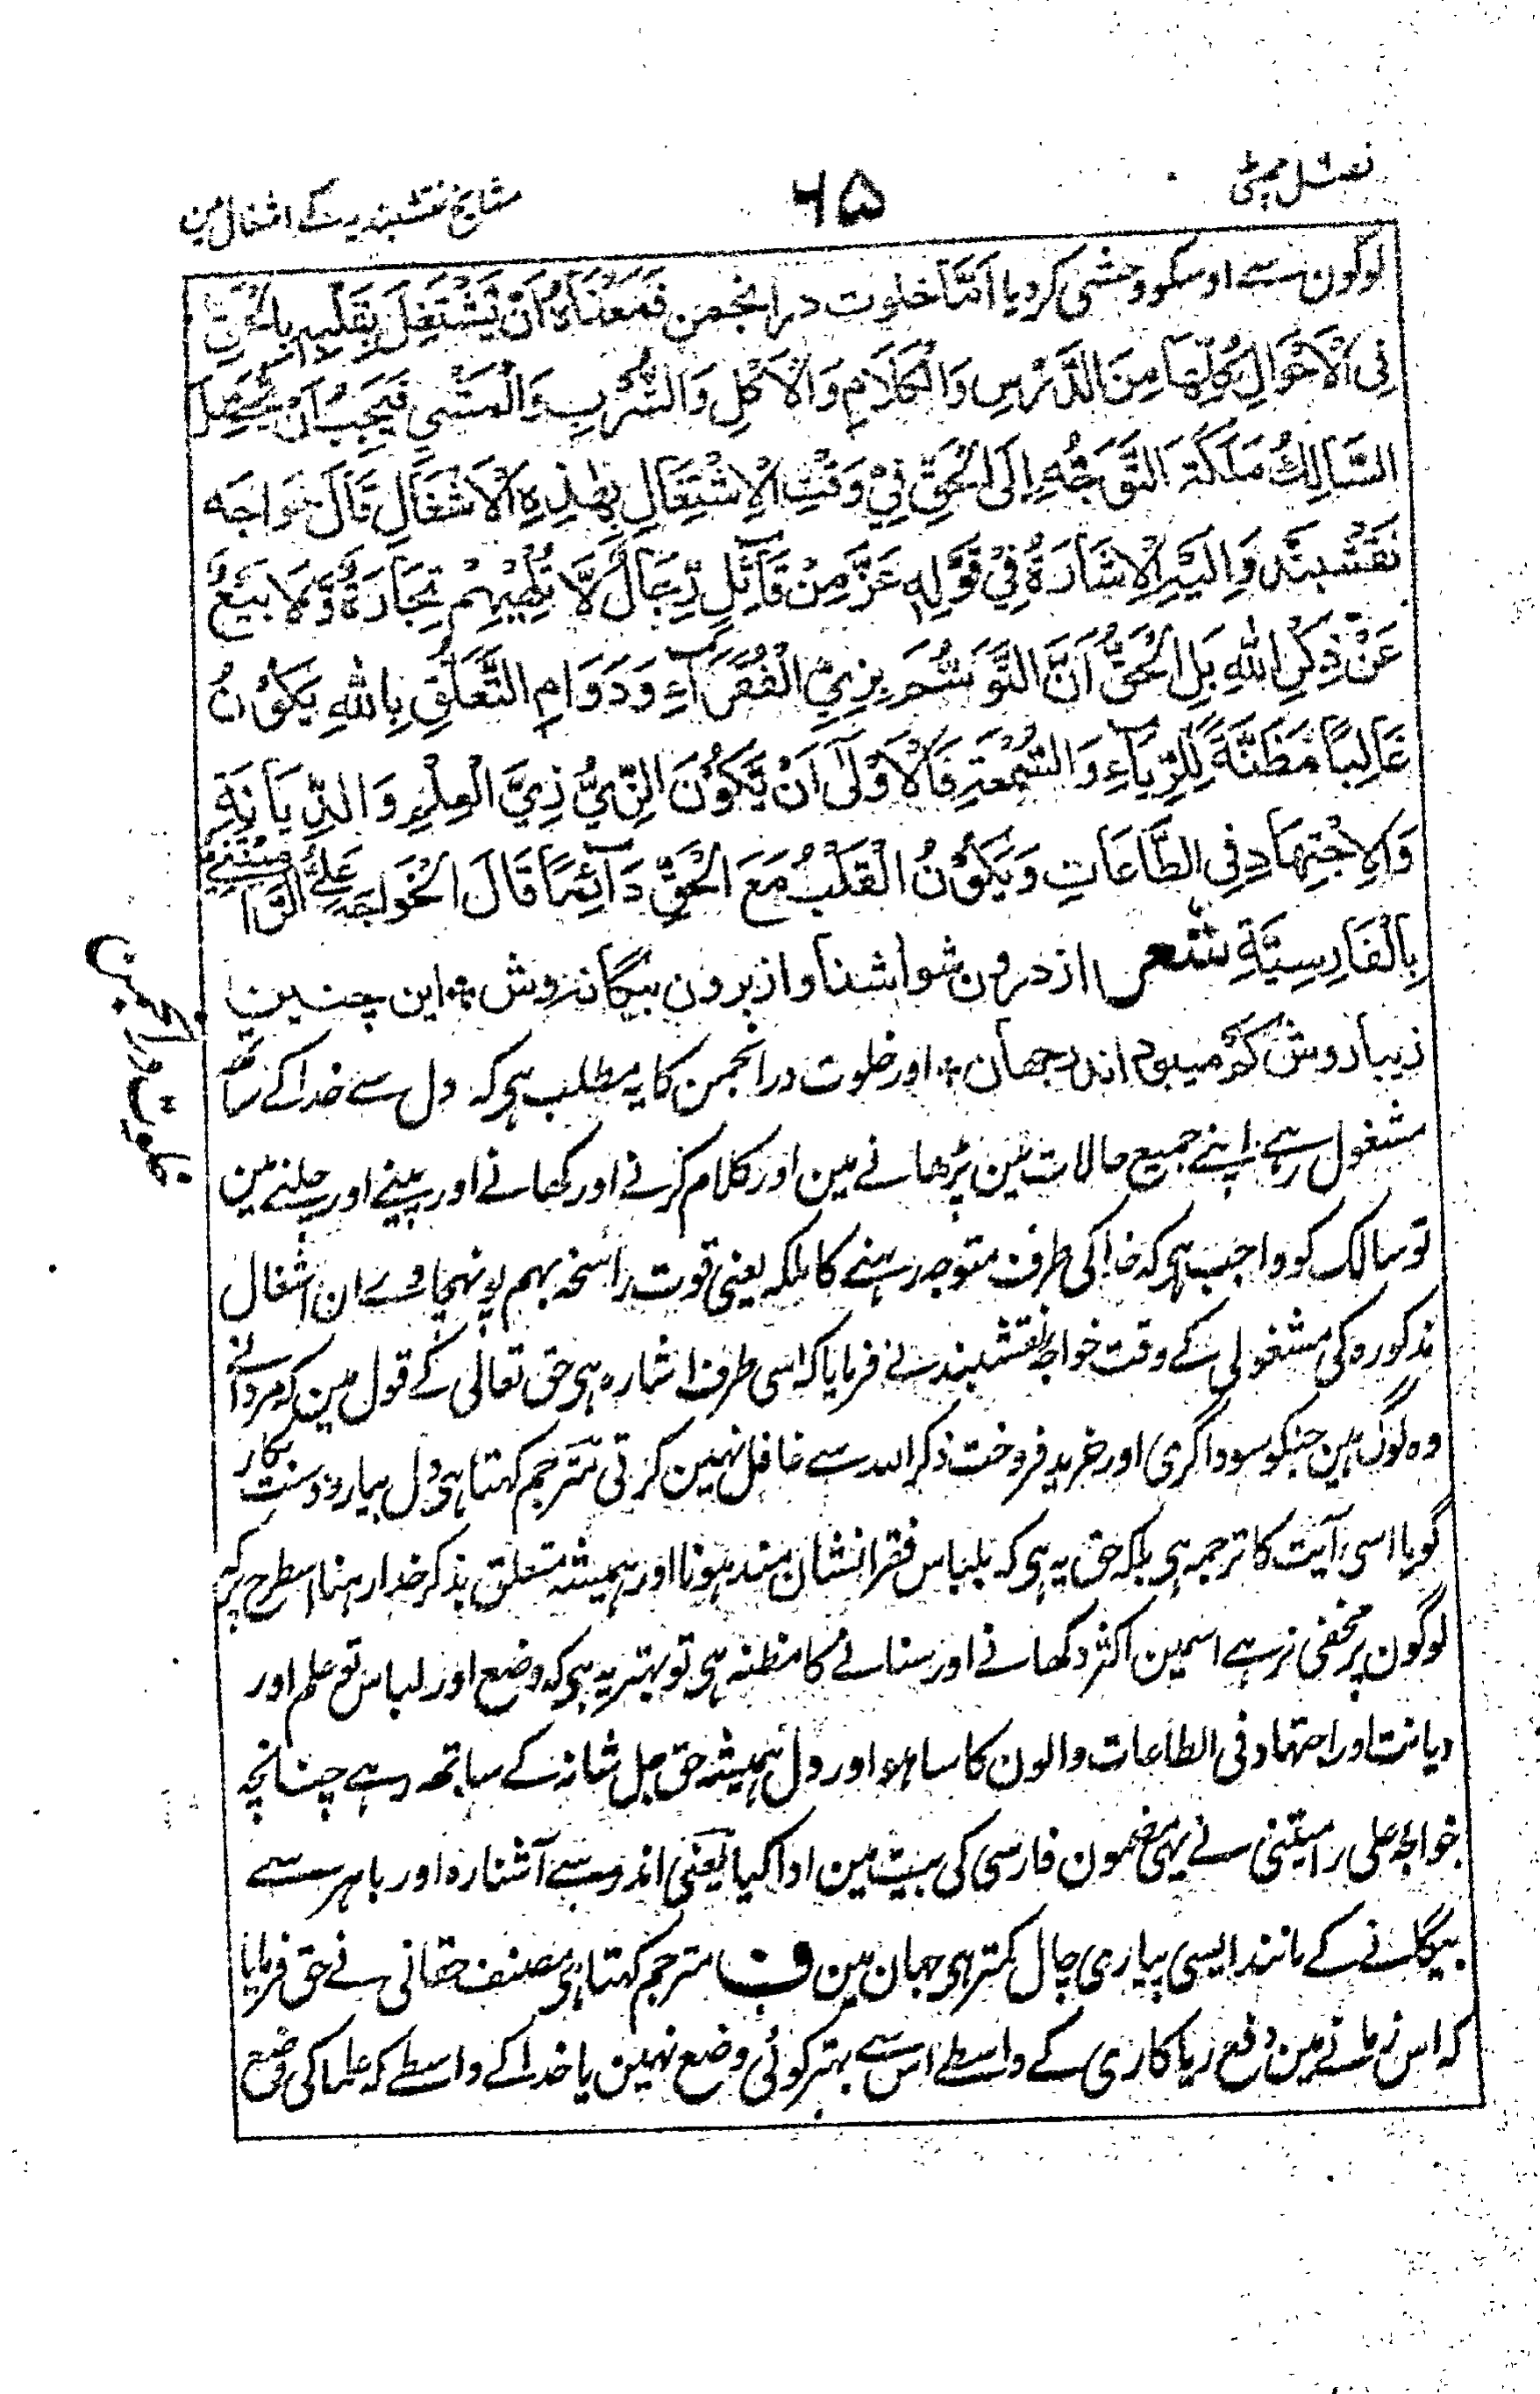 فصل چھٹی
۶۵
مشایخ نقشبندیہ کے اشغال مین
لوگون سے اوسکو وحشی کردیا اَمَّا خلوت در انجمن فَمَعْنَاهُ اَنْ يَّشْتَغِلَ بِقَلْبِهٖ بِالْحَقِّ
فِى الْاَحْوَالِ كُلِّهَا مِنَ الدَّرْسِ وَالْكَلَامِ وَالْاَكْلِ وَالشُّرْبِ وَالْمَشْىِ فَيَجِبُ اَنْ يُّحَصِّلَ
السَّالِكُ مَلَكَةَ التَّوَجُّهِ اِلَى الْحَقِّ فِيْ وَقْتِ الْاِشْتِغَالِ بِهٰذِهِ الْاَشْغَالِ قَالَ خَوَاجَه
نَقْشْبَنْد وَاِلَيْهِ الْاِشَارَةُ فِيْ قَوْلِهٖ عَزَّ مِنْ قَآئِلٍ رِّجَالٌ لَّا تُلْهِيْهِمْ تِجَارَةٌ وَّلَا بَيْعٌ
عَنْ ذِكْرِ اللهِ بَلِ الْحَقُّ اَنَّ التَّوَسُّمَ بِزِيِّ الْفُقَرَآءِ وَدَوَامِ التَّعَلُّقِ بِاللهِ يَكُوْنُ
غَالِبًا مَظَنَّةً لِّلرِّيَآءِ وَالسُّمْعَةِ فَالْاَوْلٰى اَنْ يَّكُوْنَ الزِّيُّ زِيَّ الْعِلْمِ وَالدِّيَانَةِ
وَالْاِجْتِهَادِ فِي الطَّاعَاتِ وَيَكُوْنُ الْقَلْبُ مَعَ الْحَقِّ دَآئِمًا قَالَ الْخَوَاجَه عَلِيُّ الرَّامِيْتَنِيْ
بِالْفَارِسِيَّةِ شعر از درون شو اشنا و از برون بیگانه وش ؞ این چنین
زیبا روش کم میبود اندر جهان ؞ اور خلوت در انجمن کا یہ مطلب ہی کہ دل سے خدا کے ساتھ
مشغول رہے اپنے جمیع حالات مین پڑھانے مین اور کلام کرنے اور کھانے اور پینے اور چلنے مین
تو سالک کو واجب ہی کہ خدا کی طرف متوجہ رہنے کا ملکہ یعنی قوت راسخہ بہم پونہچاوے ان اشغال
مذکورہ کی مشغولی کے وقت خواجہ نقشبند نے فرمایا کہ اسی طرف اشارہ ہی حق تعالی کے قول مین کہ مردانے
وہ لوگ ہین جنکو سوداگری اور خرید فروخت ذکر اللہ سے غافل نہین کرتی مترجم کہتا ہی دل بیار و دست بکار
گویا اسی آیت کا ترجمہ ہی بلکہ حق یہ ہی کہ بلباس فقرا نشان مند ہونا اور ہمیشہ متعلق بذکر خدا رہنا اسطرح پر کہ
لوگون پر مخفی نرہے اسمین اکثر دکھانے اور سنانے کا مظنہ ہی تو بہتر یہ ہی کہ وضع اور لباس تو علم اور
دیانت اور اجتہاد فی الطاعات والون کا سا ہو اور دل ہمیشہ حق جل شانہ کے ساتھ رہے چنانچہ
خواجہ علی رامیتنی نے یہی مضمون فارسی کی بیت مین ادا کیا یعنی اندر سے آشنا رہ اور باہر سے
بیگانے کے مانند ایسی پیاری چال کمتر ہی جہان مین ف مترجم کہتا ہی مصنف حقانی نے حق فرمایا
کہ اس زمانے مین دفع ریاکاری کے واسطے اس سے بہتر کوئی وضع نہین یا خدا کے واسطے کہ علما کی وضع
خلوت در انجمن